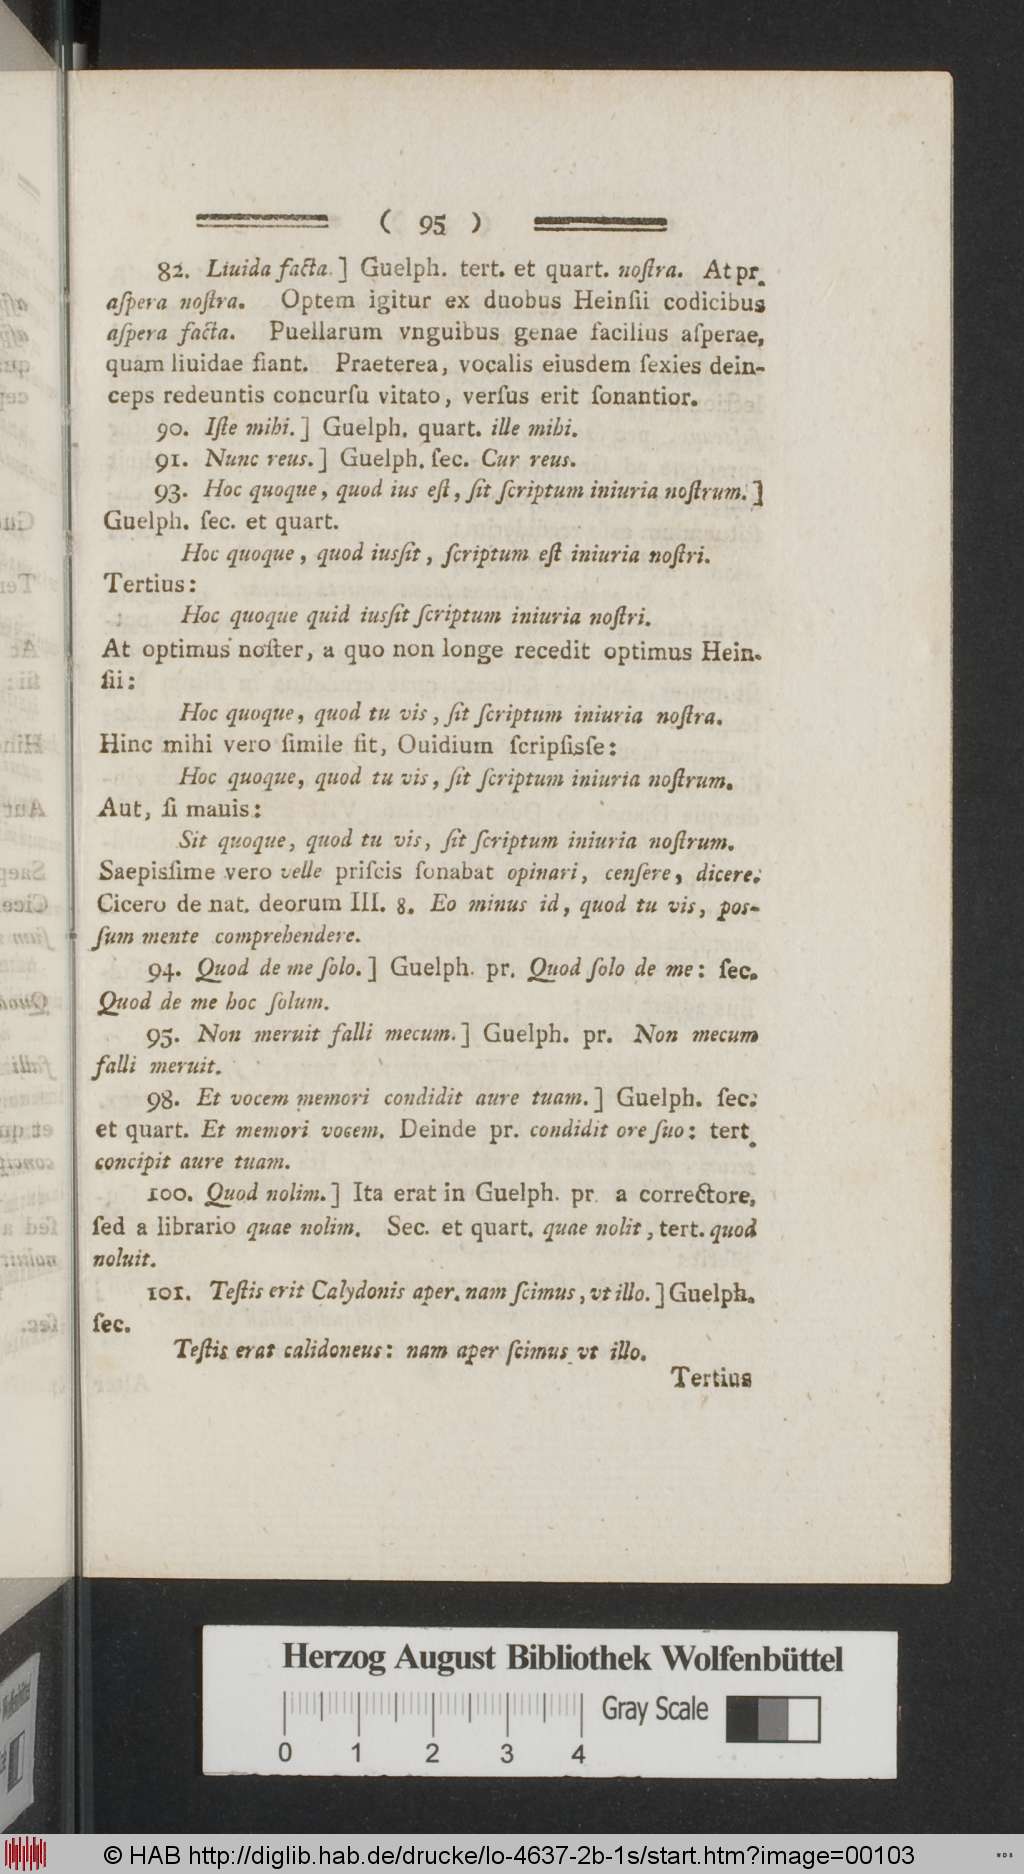 ( 95 )
82. Liuida facta.] Guelph. tert. et quart. noſtra. At pr.
aſpera noſtra. Optem igitur ex duobus Heinſii codicibus
aſpera facta. Puellarum vnguibus genae facilius aſperae,
quam liuidae fiant. Praeterea, vocalis eiusdem ſexies dein-
ceps redeuntis concurſu vitato, verſus erit ſonantior.
90. Iſte mihi.] Guelph. quart. ille mihi.
91. Nunc reus.] Guelph. ſec. Cur reus.
93. Hoc quoque, quod ius eſt, ſit ſcriptum iniuria noſtrum.]
Guelph. ſec. et quart.
Hoc quoque, quod iusſit, ſcriptum eſt iniuria noſtri.
Tertius:
Hoc quoque quid iusſit ſcriptum iniuria noſtri.
At optimus noſter, a quo non longe recedit optimus Hein-
ſii:
Hoc quoque, quod tu vis, ſit ſcriptum iniuria noſtra.
Hinc mihi vero ſimile fit, Ouidium ſcripſisſe:
Hoc quoque, quod tu vis, ſit ſcriptum iniuria noſtrum.
Aut, ſi mauis:
Sit quoque, quod tu vis, ſit ſcriptum iniuria noſtrum.
Saepisſime vero velle priſcis ſonabat opinari, cenſere, dicere.
Cicero de nat. deorum III. 8. Eo minus id, quod tu vis, pos-
ſum mente comprehendere.
94. Quod de me ſolo.] Guelph. pr. Quod ſolo de me: ſec.
Quod de me hoc ſolum.
95. Non meruit falli mecum.] Guelph. pr. Non mecum
falli meruit.
98. Et vocem memori condidit aure tuam.] Guelph. ſec.
et quart. Et memori vocem. Deinde pr. condidit ore ſuo: tert.
concipit aure tuam.
100. Quod nolim.] Ita erat in Guelph. pr. a correctore,
ſed a librario quae nolim. Sec. et quart. quae nolit, tert. quod
noluit.
101. Teſtis erit Calydonis aper. nam ſcimus, vt illo.] Guelph.
ſec.
Teſtis erat calidoneus: nam aper ſcimus vt illo.
Tertius
Herzog August Bibliothek Wolfenbüttel
Gray Scale
0 1 2 3 4
© HAB http://diglib.hab.de/drucke/lo-4637-2b-1s/start.htm?image=00103